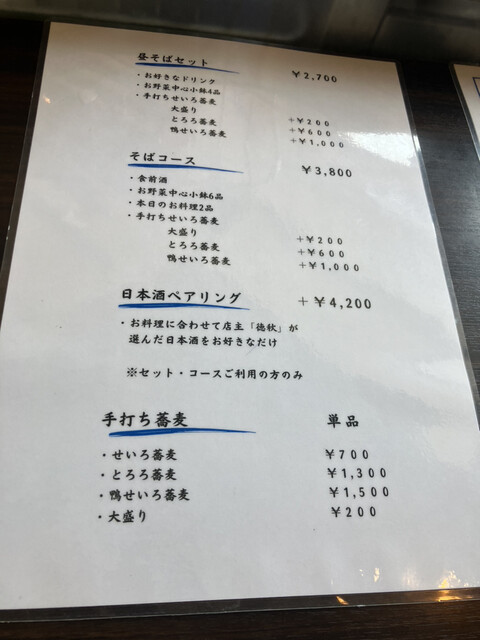 昼そばセット ￥2,700
・お好きなドリンク
・お野菜中心小鉢4品
・手打ちせいろ蕎麦
大盛り ＋￥200
とろろ蕎麦 ＋￥600
鴨せいろ蕎麦 ＋￥1,000
そばコース ￥3,800
・食前酒
・お野菜中心小鉢6品
・本日のお料理2品
・手打ちせいろ蕎麦
大盛り ＋￥200
とろろ蕎麦 ＋￥600
鴨せいろ蕎麦 ＋￥1,000
日本酒ペアリング ＋￥4,200
・お料理に合わせて店主「徳秋」が
選んだ日本酒をお好きなだけ
※セット・コースご利用の方のみ
手打ち蕎麦 単品
・せいろ蕎麦 ￥700
・とろろ蕎麦 ￥1,300
・鴨せいろ蕎麦 ￥1,500
・大盛り ￥200